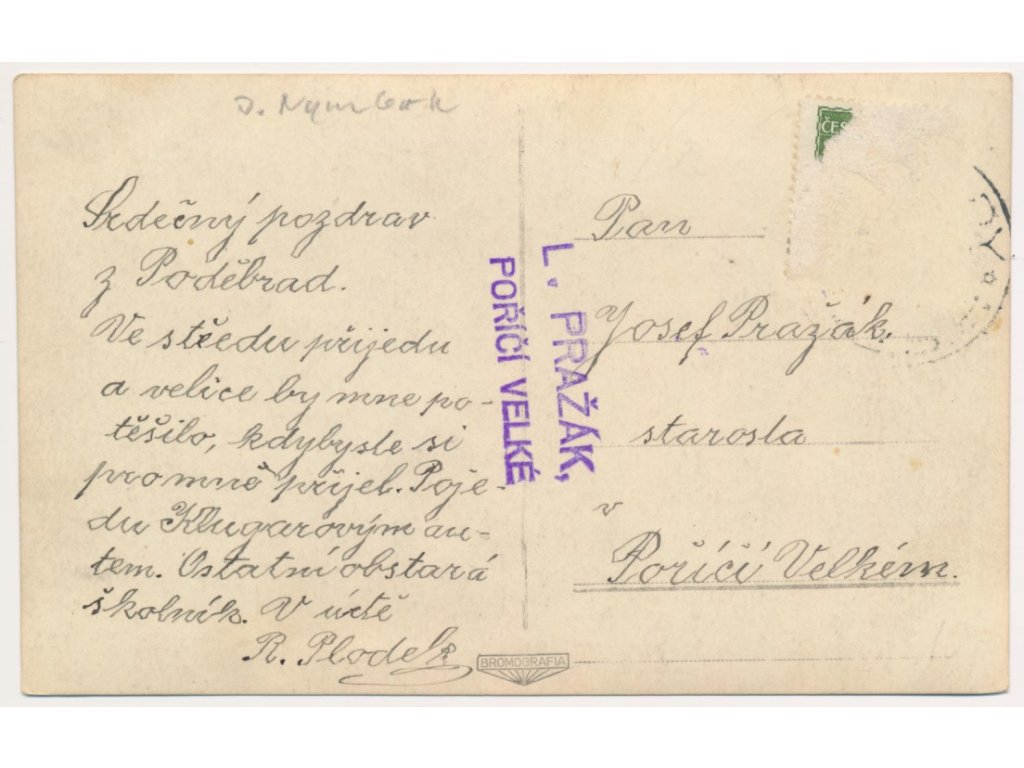 o. Nymburk
Srdečný pozdrav
z Poděbrad.
Ve středu přijedu
a velice by mne po-
těšilo, kdybyste si
pro mně přijel. Poje-
du Klugarovým au-
tem. Ostatní obstará
školník. V úctě
R. Plodek
L. PRAŽÁK,
POŘÍČÍ VELKÉ
ČES
Pan
Josef Pražák
starosta
v
Poříčí Velkém.
BROMOGRAFIA